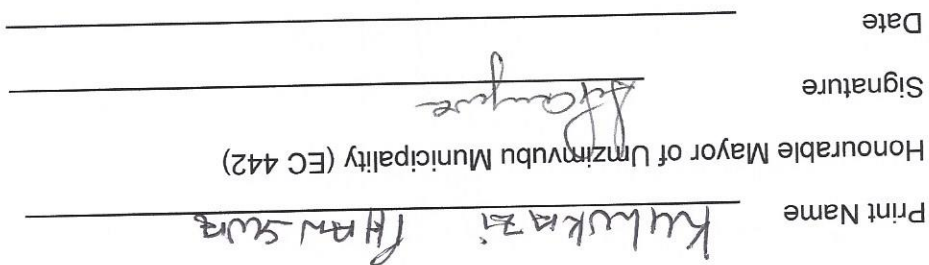 Print Name
Honourable Mayor of Umzimvubu Municipality (EC 442)
Signature
Date